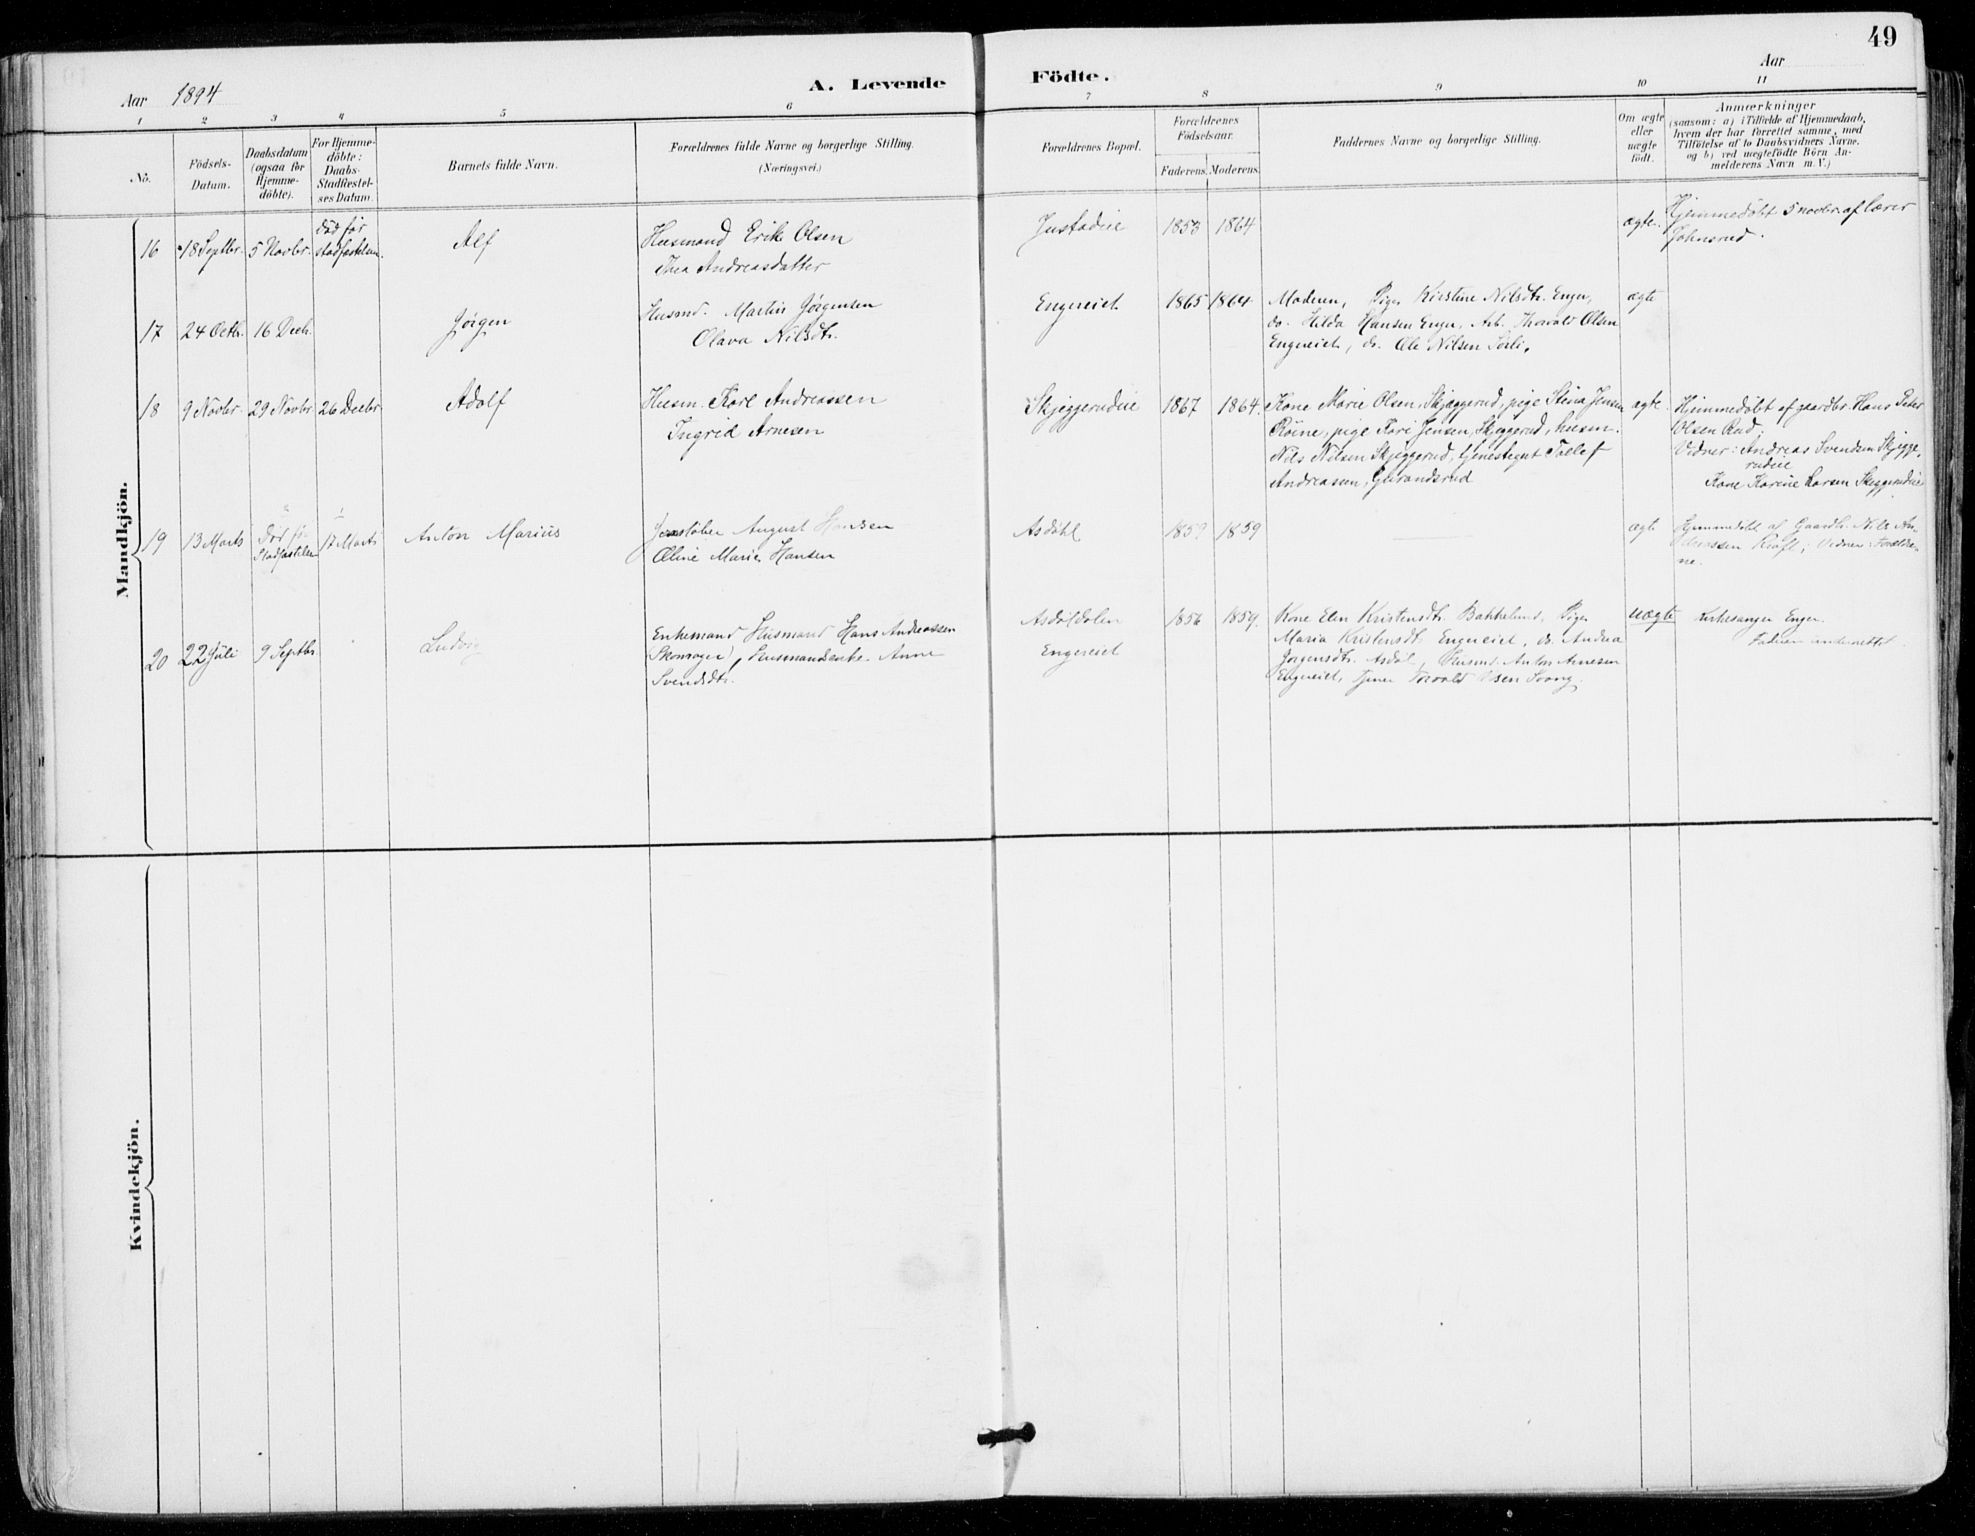 49
Aar 1894
A. Levende Födte.
Aar
1 2 3 4 5 6 7 8 9 10 11
No.
Födsels-
Datum.
Daabsdatum
(ogsaa for
Hjemme-
döbte).
For Hjemme-
döbte:
Daabs-
Stadfæstel-
ses Datum.
Barnets fulde Navn.
Forældrenes fulde Navne og borgerlige Stilling.
(Næringsvei.)
Forældrenes Bopæl.
Forældrenes
Födselsaar.
Faderens. Moderens.
Faddernes Navne og borgerlige Stilling.
Om ægte
eller
uægte
födt.
Anmærkninger
(saasom: a) i Tilfælde af Hjemmedaab,
hvem der har forrettet samme, med
Tilföielse af to Daabsvidners Navne,
og b) ved uægtefödte Börn An-
melderens Navn m. V.)
Mandkjön.
16 18 Septbr. 5 Novbr. død før
stadfæstelsen. Alf
Husmand Erik Olsen
Thea Andreasdatter
1853 1864
ægte
Hjemmedøbt 5 novbr. af lærer
Johnsrud.
17 24 Octb. 16 Decb. Jørgen
Husmd. Martin Jørgensen
Olava Nilsdtr.
Engereiet 1865 1864
Moderen, Pige Kirstine Nilsdtr. Enger,
do. Hilda Hansen Enger, Arb. Thorvald Olsen
Engereiet, do. Ole Nilsen
ægte
18 9 Novbr. 29 Novbr. 26 Decbr. Adolf
Husm. Karl Andreassen
Ingrid Arnesen
Skjeggerudeie 1867 1864.
Kone Marie Olsen, Skjeggerud, pige Stina Jensen
pige Kari Jensen, Skjeggerud, husm.
Nils Nilsen Skjeggerud, Tollef
Andreassen,
ægte
Hjemmedøbt af gaardbr. Hans Peter
Olsen Rud.
Vidner: Andreas Svendsen Skjegge-
rudeie
Kone Karine Larsen Skjeggerudeie
19 13 Marts Død før
Stadfæstelsen 17 Marts Anton Marius
August Hansen
Oline Marie Hansen
Asdøhl 1859 1859
ægte
Hjemmedøbt af Gaardbr. Nils An-
dreassen Kroft; Vidner: Forældre-
ne.
20 22 Juli 9 Septbr. Ludvig
Enkemand Husmand Hans Andreassen
Husmandsenke Anne
Svendsdtr.
Asdøldalen
Engereiet
1856 1859.
Kone Elen Kristensdtr. Bakkelund, Pige
Maria Kristensdtr. Engereiet, do. Andrea
Jørgensdtr. Asdøl, Husmd. Anton Arnesen
Engereiet,
uægte
Kirkesanger Enger.
Faderen underrettet.
Kvindekjön.